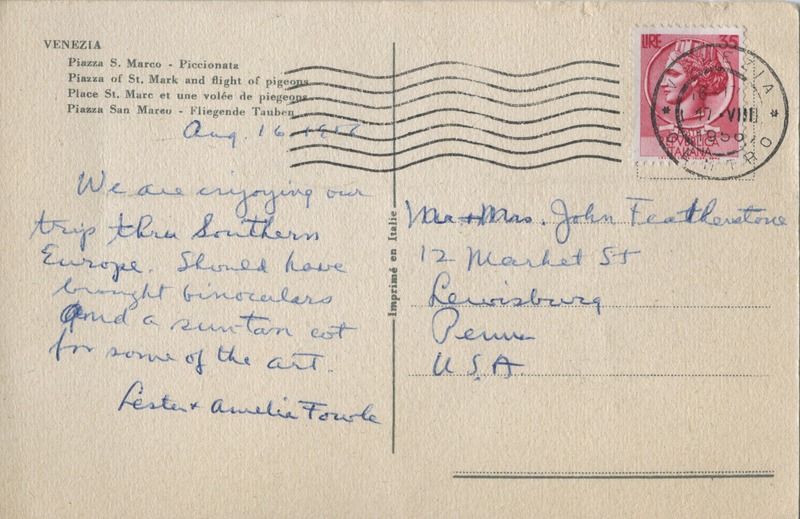 VENEZIA
Piazza S. Marco - Piccionata
Piazza of St. Mark and flight of pigeons
Place St. Marc et une volée de piegeons
Piazza San Marco - Fliegende Tauben
Aug. 16 1956
We are enjoying our
trip thru Southern
Europe. Should have
brought binoculars
and a suntan cot
for some of the art.
Lester + Amelia Fowle
Imprimé en Italie
LIRE 35
ITALIANA
VENEZIA
17-VIII
1956
CENTRO
Mr + Mrs. John Featherstone
12 Market St
Lewisburg
Penn
U.S.A.